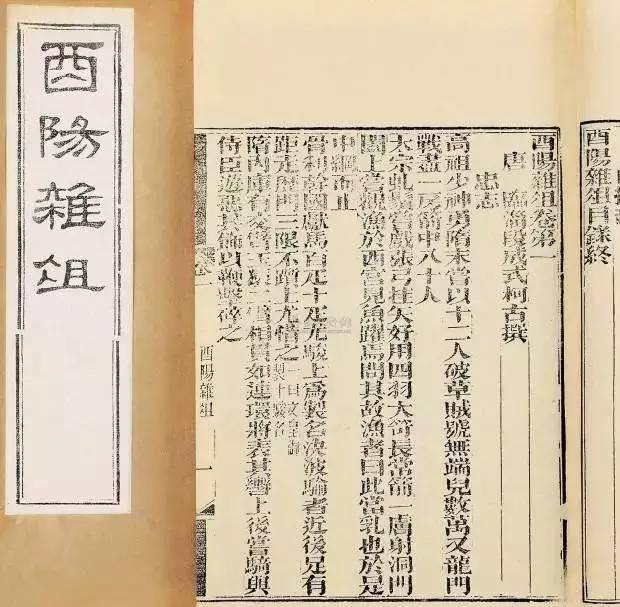 酉陽雜俎
酉陽雜俎目錄終
酉陽雜俎卷第一
唐 臨淄段成式柯古撰
忠志
高祖少神勇隋末嘗以十二人破草賊號無端兒數萬又龍門
戰盡一房箭中八十人
太宗虬髯嘗戲張弓挂矢好用四羽大笴長常箭一膚射洞門
闔上嘗觀漁於西宮見魚躍焉問其故漁者曰此當乳也於是
中網而止
骨利幹國獻馬百疋十疋尤駿上為製名決波騟者近後足有
距走歷門三限不躓上尤惜之 一曰文皇 製十驥名
隋內庫有交臂玉猿二臂相貫如連環將表其轡上後嘗騎與
侍臣遊惡其飾以鞭擊碎之
酉陽雜俎 一